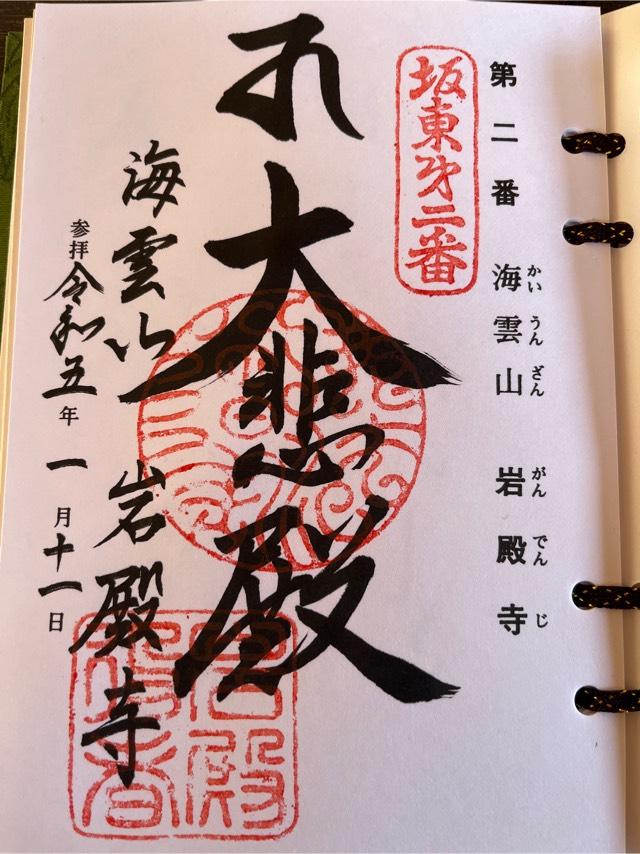 第二番 海雲山 岩殿寺
かいうんざん がんでんじ
坂東第二番
大悲殿
海雲山 岩殿寺
参拝 令和五年 一月十一日